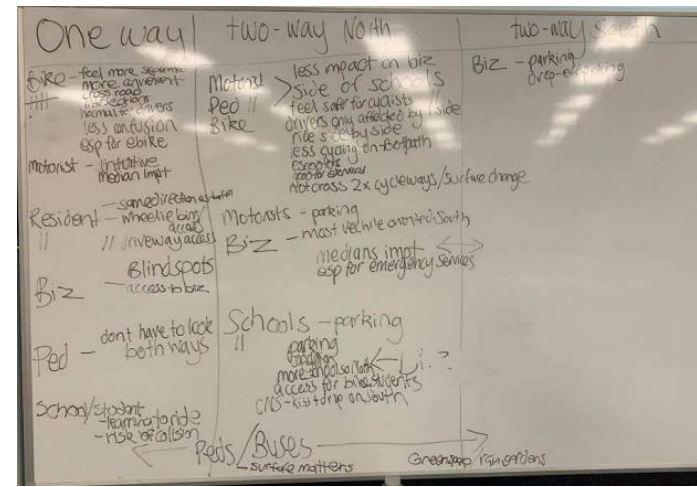 One way
Bike - feel more separate
more convenient
cross road
intersections
normal for drivers
less confusion
esp for ebike
Motorist - intuitive
Median impt
- same direction as
Resident - wheelie bins
access
" " driveway access
Blindspots
Biz - access to biz
dont have to look
Ped - both ways
School/student
- learning to ride
- risk of collision
two-way North
less impact on biz
Motorist > side of schools
Ped "
feel safe for cyclists
Bike drivers only affected by 1 side
ride side by side
less cycling on footpath
escooters
not cross 2x cycleways/surface change
Motorists - parking
Biz - most vechile on South
medians impt
esp for emergency services
Schools - parking
" parking
more schools on North
access for bike students
CNS - kiss + drop on south
two-way South
Biz - parking
drop-off
Peds/Buses
- surface matters
Greenspace/raingardens